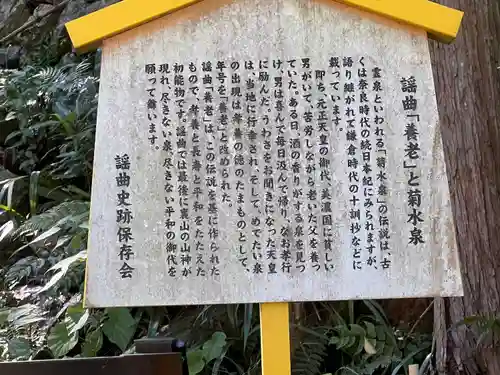 謡曲「養老」と菊水泉
霊泉といわれる「菊水泉」の伝説は、古
くは奈良時代の続日本紀にみられますが、
語り継がれて鎌倉時代の十訓抄などに
載っています。
即ち、元正天皇の御代、美濃国に貧しい
男がいて、苦労しながら老いた父を養っ
ていた。ある日、酒の香りがする泉を見つ
け、男は喜んで毎日汲んで帰り、なお孝行
に励んだ。うわさをお聞きになった天皇
は、当地に行幸され、そして、めでたい泉
の出現は孝養の徳のたまものとして、
年号を「養老」と改められた。
謡曲「養老」は、この伝説を基に作られた
もので、孝養と長寿と平和をたたえた
初能物です。謡曲では最後に裏の山の山神が
現れ、尽きない泉、尽きない平和の御代を
願って舞います。
謡曲史跡保存会